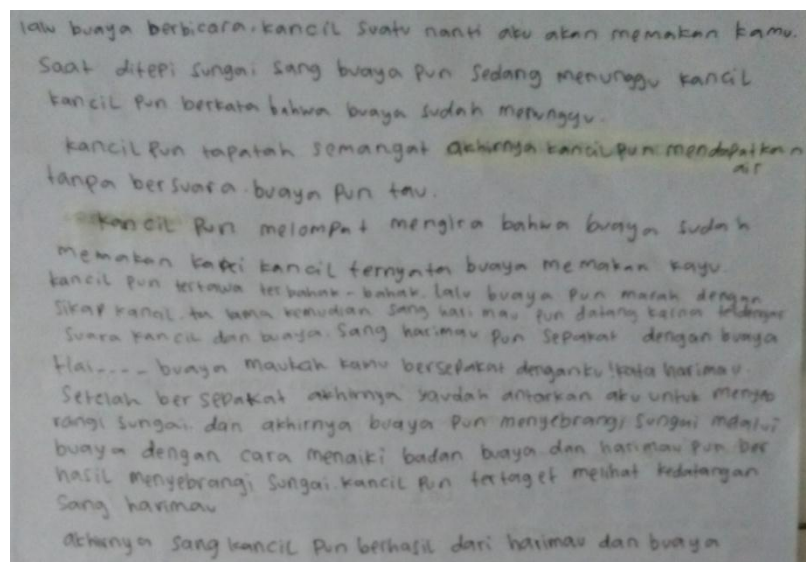 lalu buaya berbicara, kancil suatu nanti aku akan memakan kamu.
Saat ditepi sungai sang buaya pun sedang menunggu kancil
kancil pun berkata bahwa buaya sudah menunggu.
kancil pun tapatah semangat akhirnya kancil pun mendapatkan
air
tanpa bersuara buaya pun tau.
kancil pun melompat mengira bahwa buaya sudah
memakan kaki kancil ternyata buaya memakan kayu.
kancil pun tertawa terbahak-bahak. lalu buaya pun marah dengan
sikap kancil. tak lama kemudian sang harimau pun datang karna terdengar
suara kancil dan buaya. Sang harimau pun sepakat dengan buaya
Hai.... buaya maukah kamu bersepakat denganku! kata harimau.
Setelah bersepakat akhirnya yaudah antarkan aku untuk menyeb
rangi sungai. dan akhirnya buaya pun menyebrangi sungai melalui
buaya dengan cara menaiki badan buaya. dan harimau pun ber
hasil menyebrangi sungai. kancil pun tertaget melihat kedatangan
Sang harimau
akhirnya sang kancil pun berhasil dari harimau dan buaya